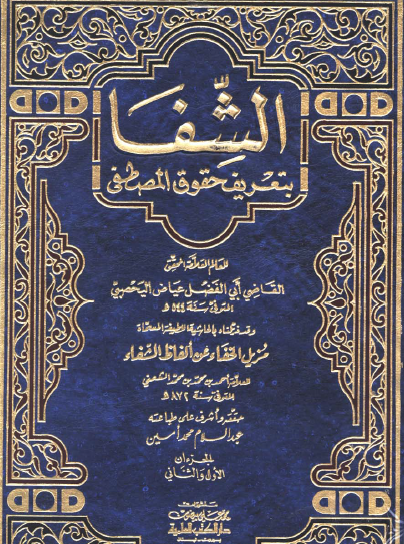 الشِّفَا
بتعريف حقوق المصطفى
للعالم العلامة المحقق
القاضي أبي الفضل عياض اليحصبي
المتوفى سنة ٥٤٤ هـ
وقد ذيلناه بالحاشية اللطيفة المسماة
مزيل الخفاء عن ألفاظ الشفاء
للعلامة أحمد بن محمد بن محمد الشمني
المتوفى سنة ٨٧٢ هـ
حققه وأشرف على طباعته
عبد السلام محمد أمين
الجزءان
الأول والثاني
دار الكتب العلمية